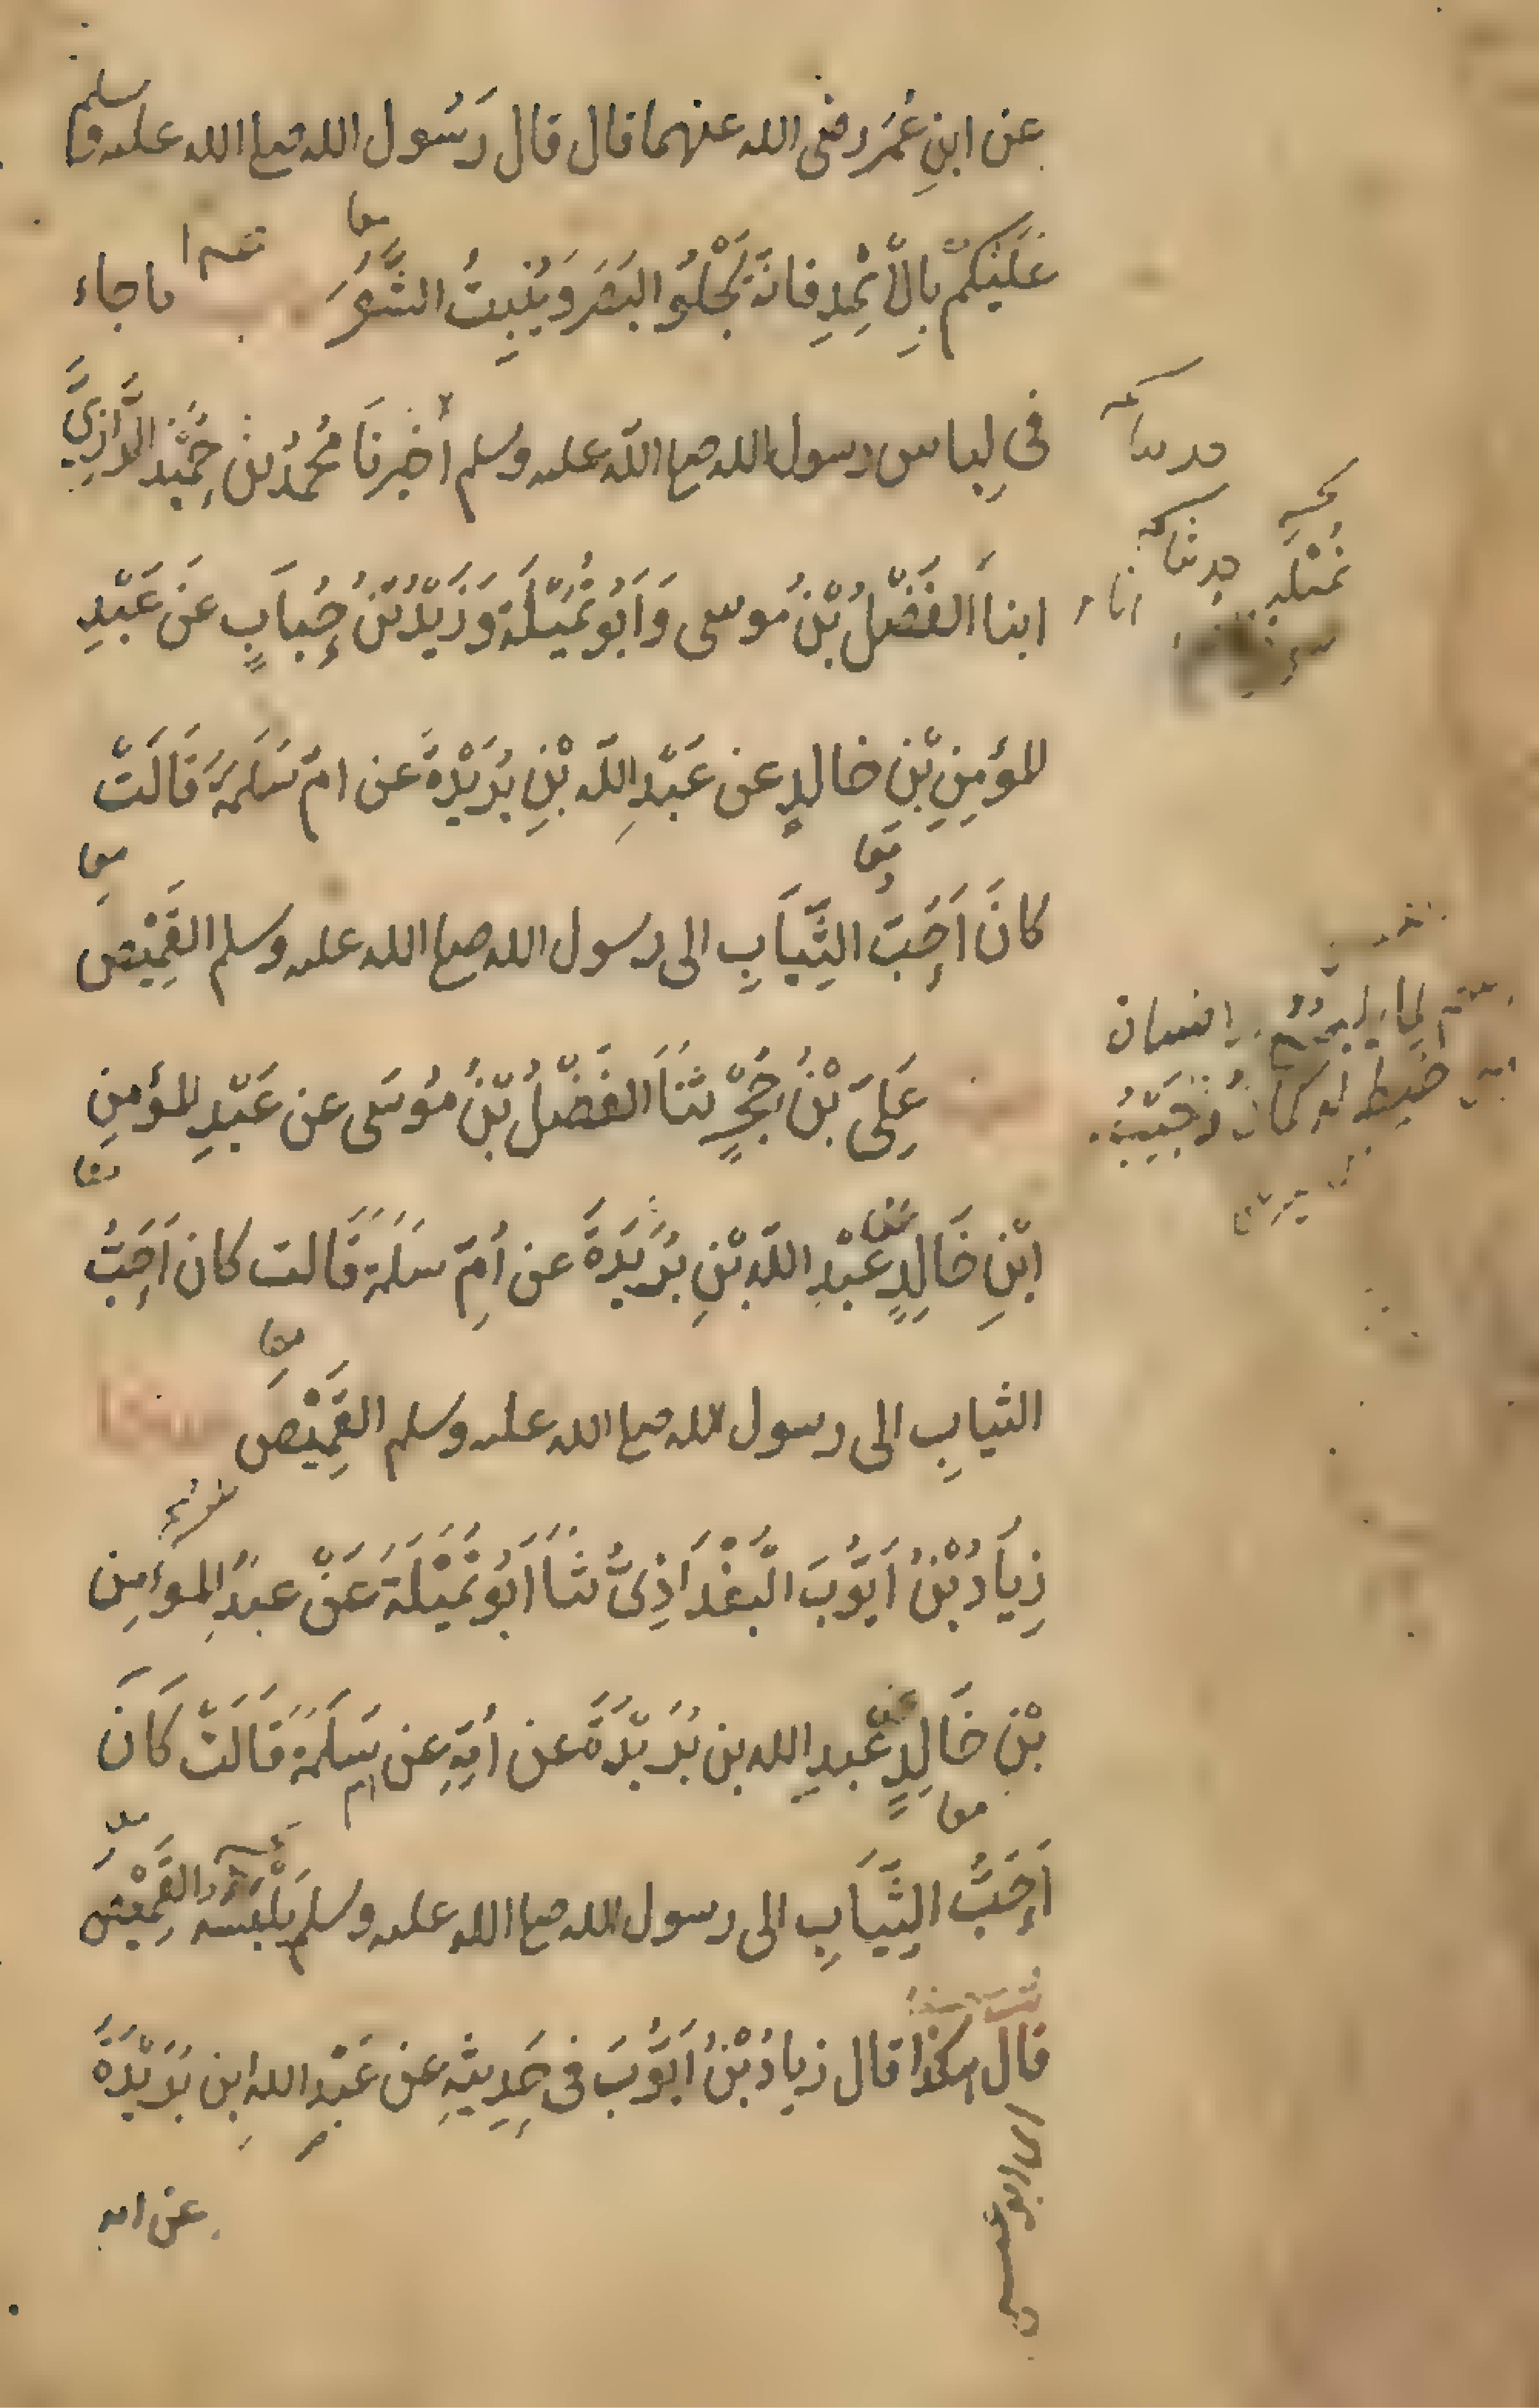 عن ابنِ عُمَرَ رضى الله عنهما قال قال رَسُول الله صلى الله عليه وسلم
عَلَيْكُمْ بِالْاِثْمِدِ فَانَّهُ يَجْلُو البَصَرَ وَيُنْبِتُ الشَّعْرَ ما جاء
معا
فى لِباس رسول الله صلى الله عليه وسلم أخبرنَا مُحمدُ بنُ حُمَيْدٍ الرَّازِيُّ
حدثنا
ابناَ الفَضْلُ بْنُ مُوسى وَاَبُو تُمَيْلَةَ وَزَيْدُ بْنُ حُبَابٍ عَن عَبْدِ
حدثنا انا تُمَيْلَه
المؤمِنِ بْنِ خالدٍ عن عَبْدِ اللّه بْنِ بُرَيْدَةَ عن امّ سَلَمَةَ قَالَتْ
معا معا
كانَ اَحَبَّ الثِّيَابِ الى رسول الله صلى الله عليه وسلم القَمِيْصُ
عَلِىُّ بْنُ حُجْرٍ ثنَا الفَضْلُ بْنُ مُوسَى عن عَبْدِ المؤمِنِ
ضبط
معا
ابْنِ خَالِدٍ عن عَبْدِ اللّه بْنِ بُرَيْدَةَ عن اُمِّ سلمة قَالت كان اَحَبُّ
معا
الثيابِ الى رسول الله صلى الله عليه وسلم القَمِيْصَ
زِيَادُ بْنُ اَيُّوبَ الْبَغْدَاذِىُّ ثنَا اَبُو تُمَيْلَةَ عَنْ عبدِ الموامِن
بْنِ خَالِدٍ عن عَبدِ الله بن بُرَيْدَةَ عن اُمِّهِ عن ام سَلَمَة قَالَتْ كَانَ
معا
اَحَبُّ الثِّيَابِ الى رسول الله صلى الله عليه وسلم يَلْبَسُهُ القَمِيْصُ
قال هكذا قال زيادُ بْنُ اَيُّوبَ فى حَدِيثِهِ عن عَبْدِ الله ابن بُرَيْدَةَ
عن امه